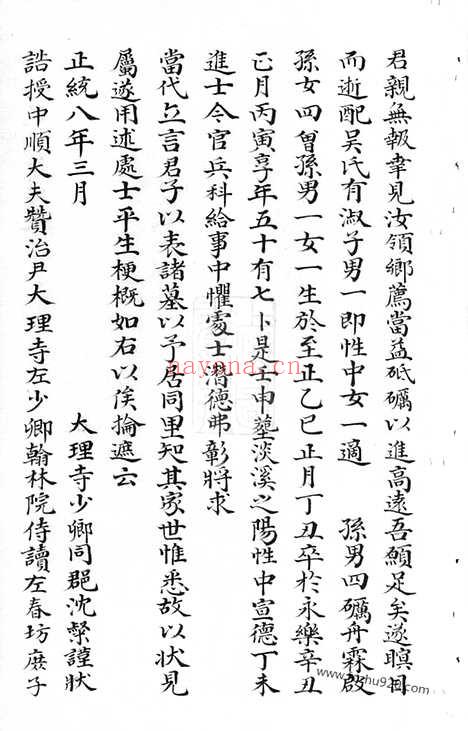 君親無報幸見汝領鄉薦當益砥礪以進高遠吾願足矣遂瞑目
而逝配吳氏有淑子男一即性中女一適 孫男四礪舟霖啟
孫女四曾孫男一女一生於至正乙巳正月丁丑卒於永樂辛丑
正月丙寅享年五十有七卜是壬申塟淡溪之陽性中宣德丁未
進士令官兵科給事中懼處士潛德弗彰將求
當代立言君子以表諸墓以予居同里知其家世惟悉故以狀見
屬遂用述處士平生梗概如右以俟掄遮云
正統八年三月 大理寺少卿同郡沈 謹狀
誥授中順大夫贊治尹大理寺左少卿翰林院侍讀左春坊庶子
nayana.cn